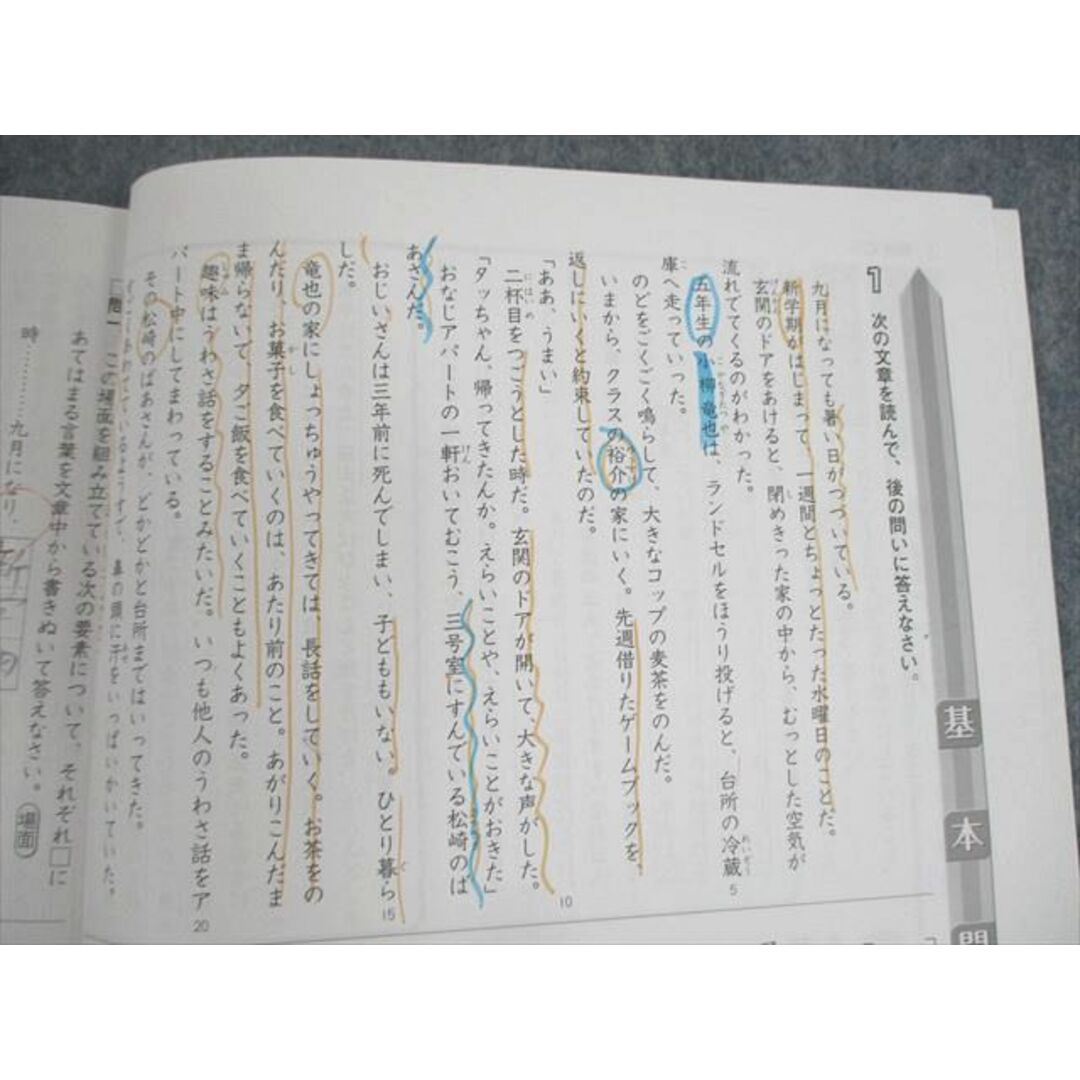 基本問
1 次の文章を読んで、後の問いに答えなさい。
九月になっても暑い日がつづいている。
新学期がはじまって、一週間とちょっとたった水曜日のことだ。
玄関のドアをあけると、閉めきった家の中から、むっとした空気が
流れでてくるのがわかった。
五年生の小柳竜也は、ランドセルをほうり投げると、台所の冷蔵
庫へ走っていった。
のどをごくごく鳴らして、大きなコップの麦茶をのんだ。
いまから、クラスの裕介の家にいく。先週借りたゲームブックを、
返しにいくと約束していたのだ。
「ああ、うまい」
二杯目をつごうとした時だ。玄関のドアが開いて、大きな声がした。
「タッちゃん、帰ってきたんか。えらいことや、えらいことがおきた」
おなじアパートの一軒おいてむこう、三号室にすんでいる松崎のば
あさんだ。
おじいさんは三年前に死んでしまい、子どももいない。ひとり暮ら
しだ。
竜也の家にしょっちゅうやってきては、長話をしていく。お茶をの
んだり、お菓子を食べていくのは、あたり前のこと。あがりこんだま
ま帰らないで、夕ご飯を食べていくこともよくあった。
趣味はうわさ話をすることみたいだ。いつも他人のうわさ話をア
パート中にしてまわっている。
その松崎のばあさんが、どかどかと台所まではいってきた。
鼻の頭に汗をいっぱいかいていた。
5
10
15
20
問一 この場面を組み立てている次の要素について、それぞれ□に
あてはまる言葉を文章中から書きぬいて答えなさい。 場面
時………九月になり、